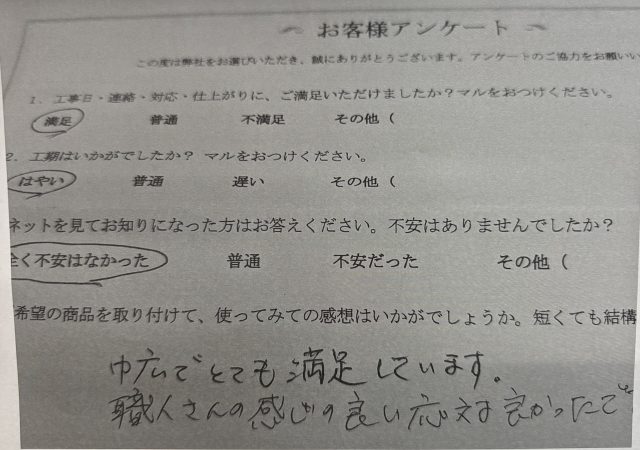 お客様アンケート
この度は弊社をお選びいただき、誠にありがとうございます。アンケートのご協力をお願いい
1. 工事日・連絡・対応・仕上がりに、ご満足いただけましたか？マルをおつけください。
満足 普通 不満足 その他（
2. 工期はいかがでしたか？ マルをおつけください。
はやい 普通 遅い その他（
ネットを見てお知りになった方はお答えください。不安はありませんでしたか？
全く不安はなかった 普通 不安だった その他（
希望の商品を取り付けて、使ってみての感想はいかがでしょうか。短くても結構
巾広でとても満足しています。
職人さんの感じの良い応対は良かったで